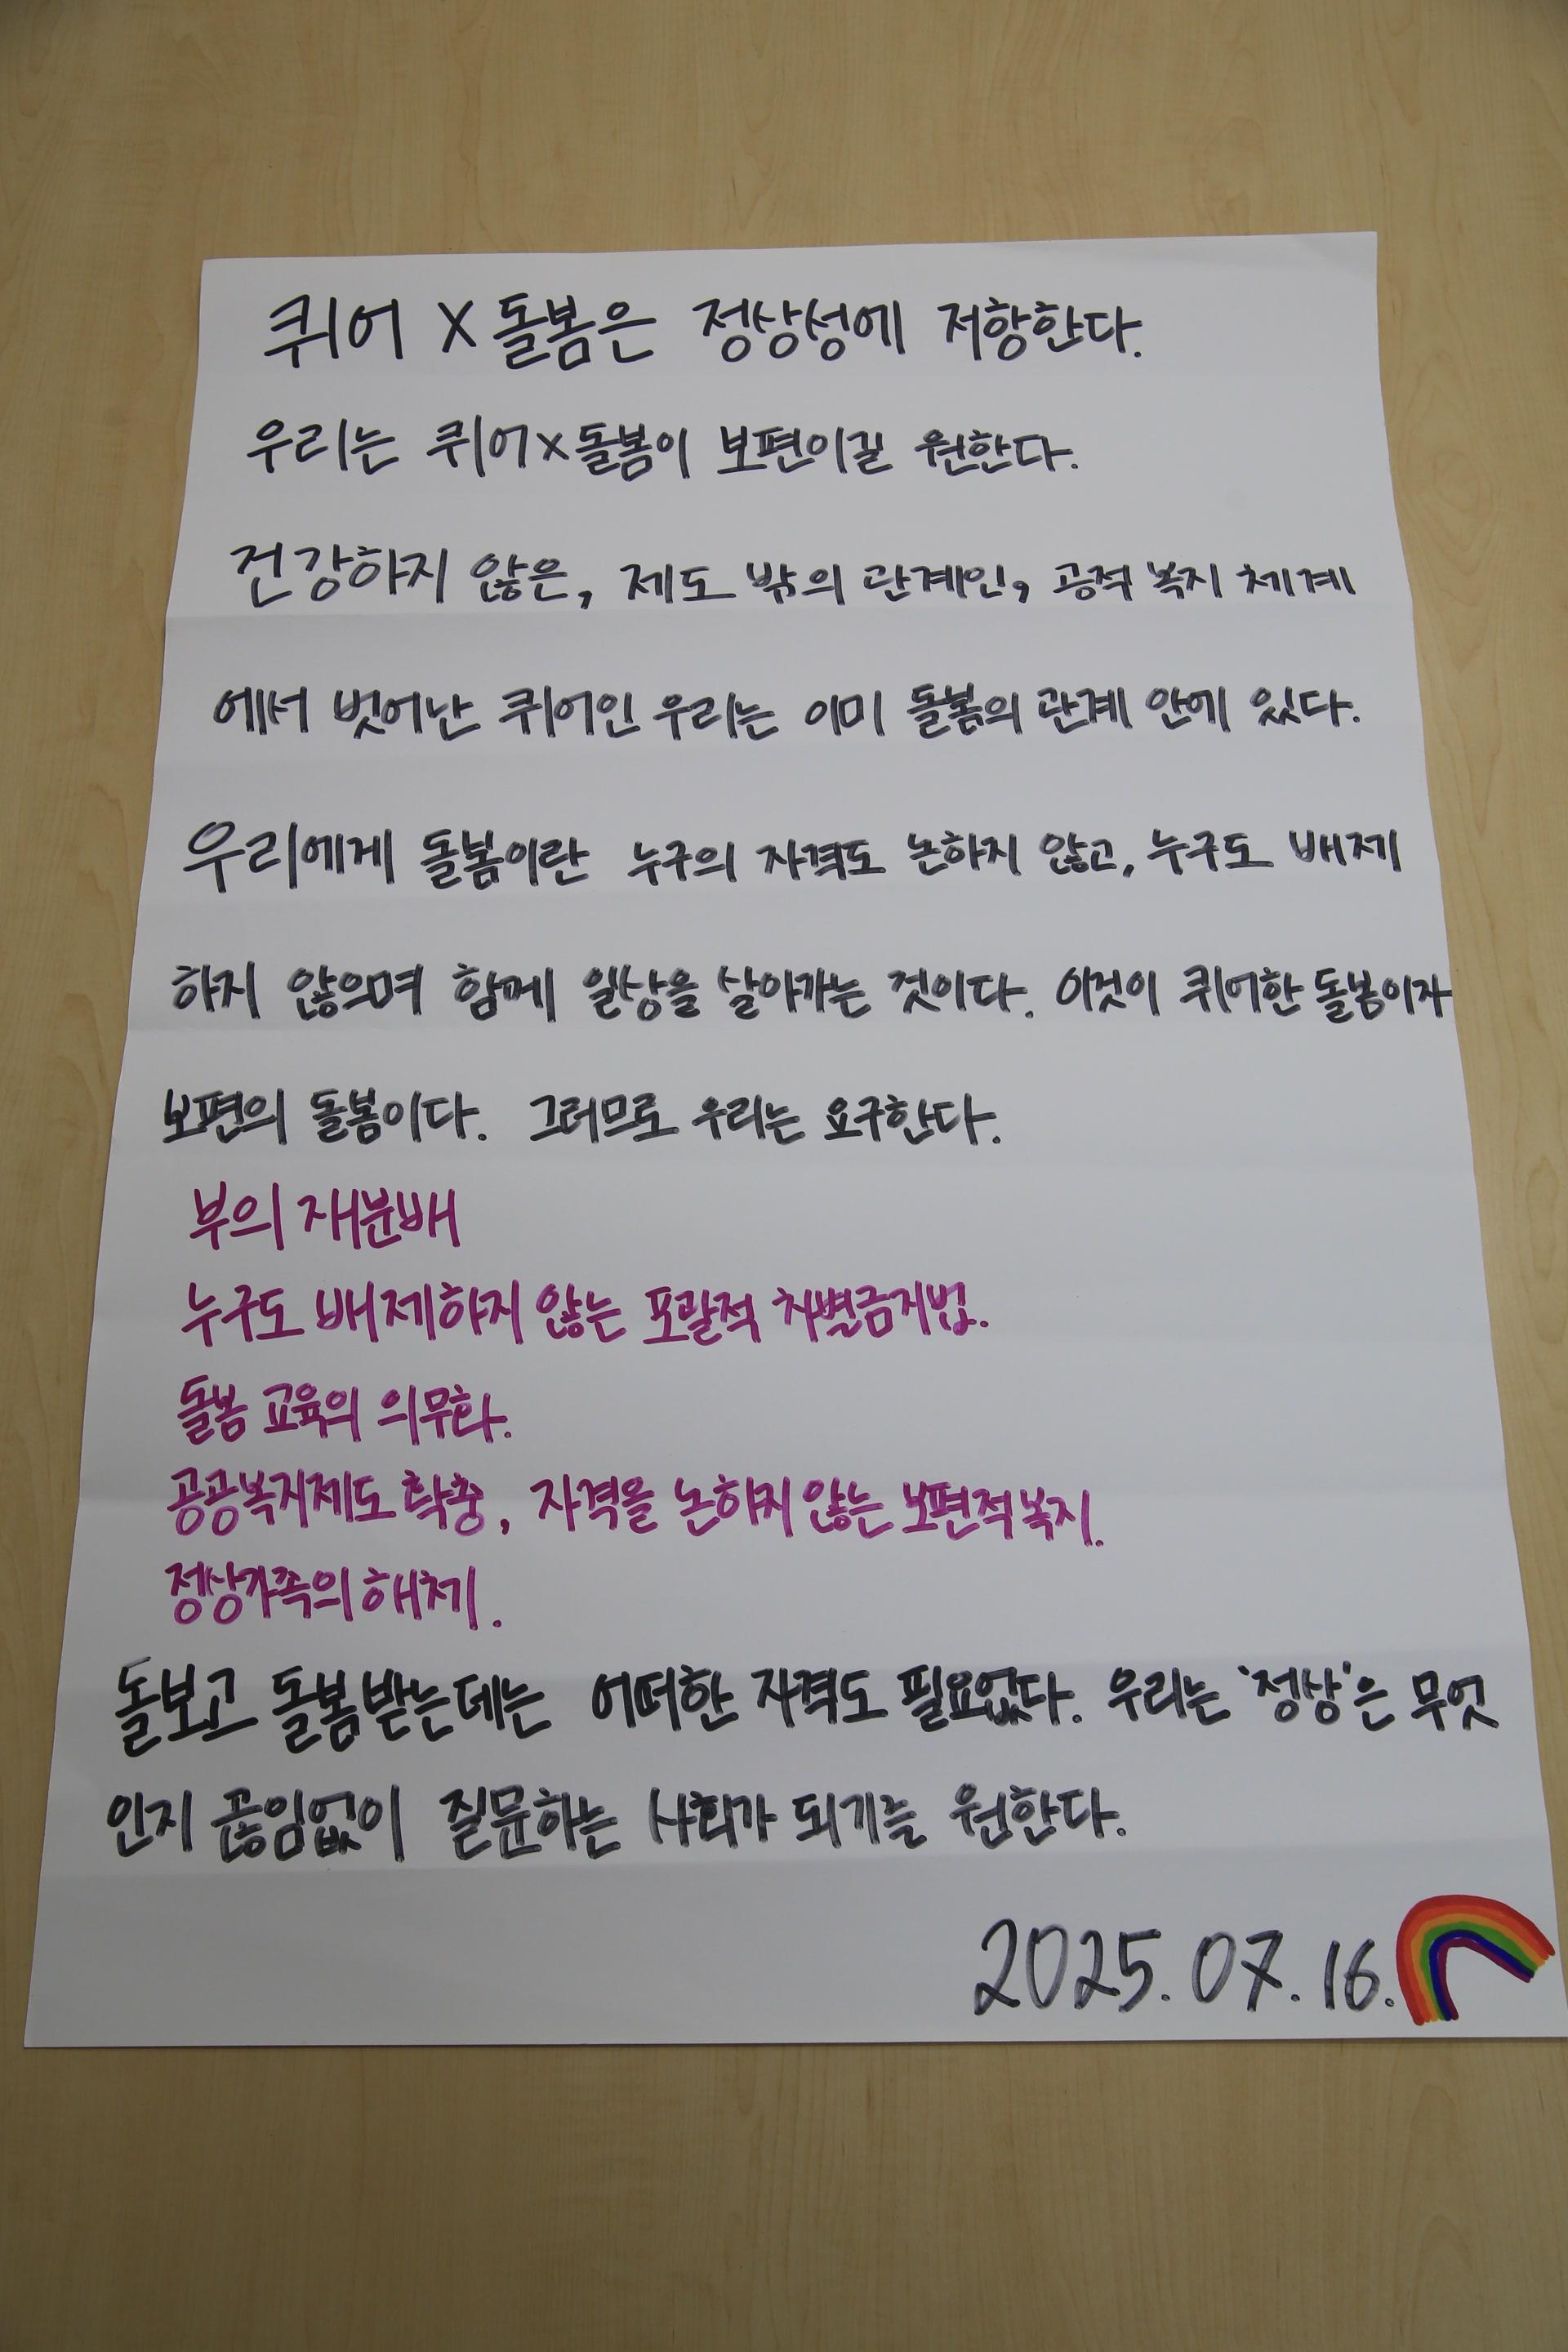 퀴어 X 돌봄은 정상성에 저항한다.
우리는 퀴어x돌봄이 보편이길 원한다.
건강하지 않은, 제도 밖의 관계인, 공적 복지 체계
에서 벗어난 퀴어인 우리는 이미 돌봄의 관계 안에 있다.
우리에게 돌봄이란 누구의 자격도 논하지 않고, 누구도 배제
하지 않으며 함께 일상을 살아가는 것이다. 이것이 퀴어한 돌봄이자
보편의 돌봄이다. 그러므로 우리는 요구한다.
부의 재분배
누구도 배제하지 않는 포괄적 차별금지법.
돌봄 교육의 의무화.
공공복지제도 확충, 자격을 논하지 않는 보편적 복지.
정상가족의 해체.
돌보고 돌봄받는데는 어떠한 자격도 필요없다. 우리는 '정상'은 무엇
인지 끊임없이 질문하는 사회가 되기를 원한다.
2025. 07. 16.